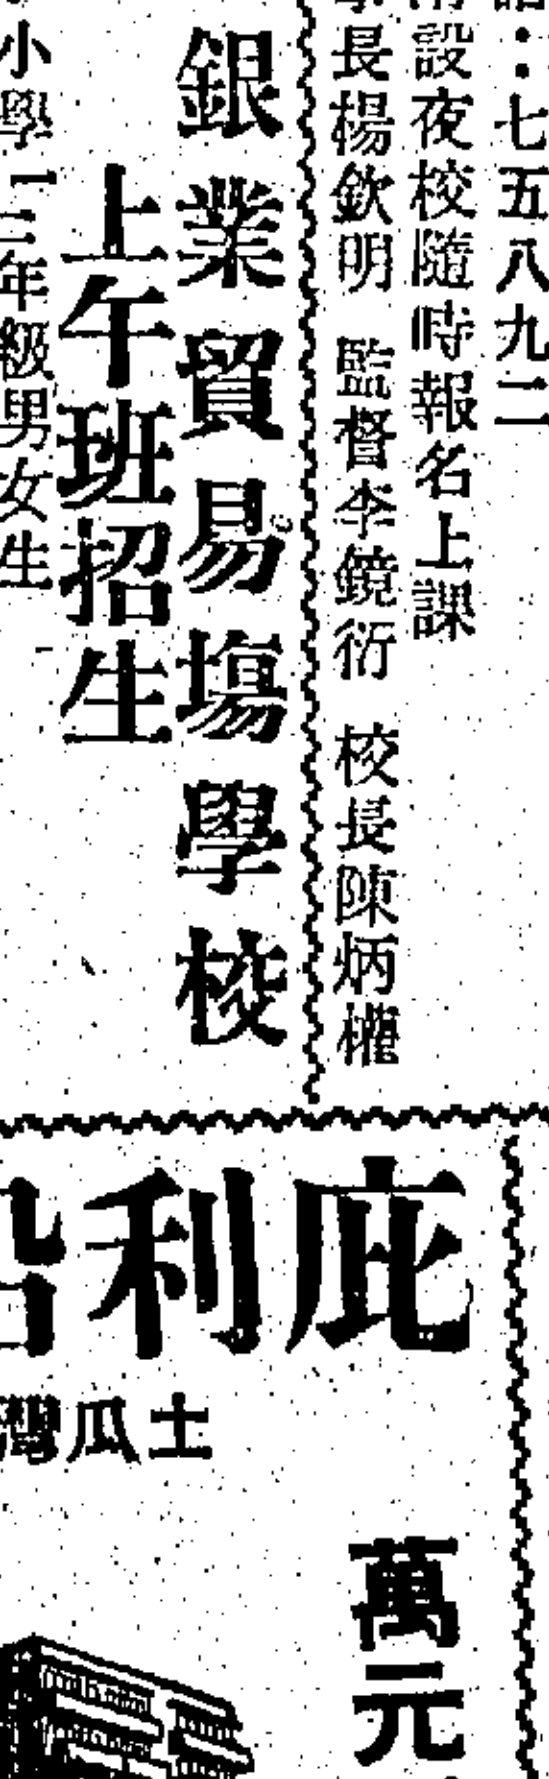 七五八九二
設夜校隨時報名上課
長楊欽明 監督李鏡衍 校長陳炳權
銀業貿易塲學校
上午班招生
小學一二年級男女生
庇利
土瓜灣
萬元